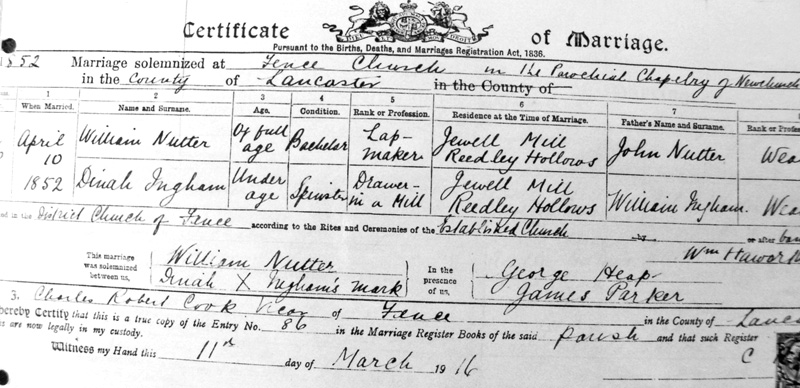 Certificate of Marriage.
Pursuant to the Births, Deaths, and Marriages Registration Act, 1836.
1852 Marriage solemnized at Fence Church in the Parochial Chapelry of Newchurch
in the County of Lancaster in the County of
1 2 3 4 5 6 7
When Married. Name and Surname. Age. Condition. Rank or Profession. Residence at the Time of Marriage. Father's Name and Surname. Rank or Profes
April 10 1852
William Nutter Of full age Bachelor Lap-maker Jewell Mill Reedley Hollows John Nutter Wea
Dinah Ingham Under age Spinster Drawer-in a Mill Jewell Mill Reedley Hollows William Ingham. Wea
ed in the District Church of Fence according to the Rites and Ceremonies of the Established Church by or after ban
This marriage was solemnized between us, William Nutter
Dinah X Ingham's mark
In the presence of us, George Heap
James Parker
Wm
3. Charles Robert Cook Vicar of Fence in the County of Lanca
hereby Certify that this is a true copy of the Entry No. 86 in the Marriage Register Books of the said Parish and that such Register
s are now legally in my custody. C
Witness my Hand this 11th day of March 1916